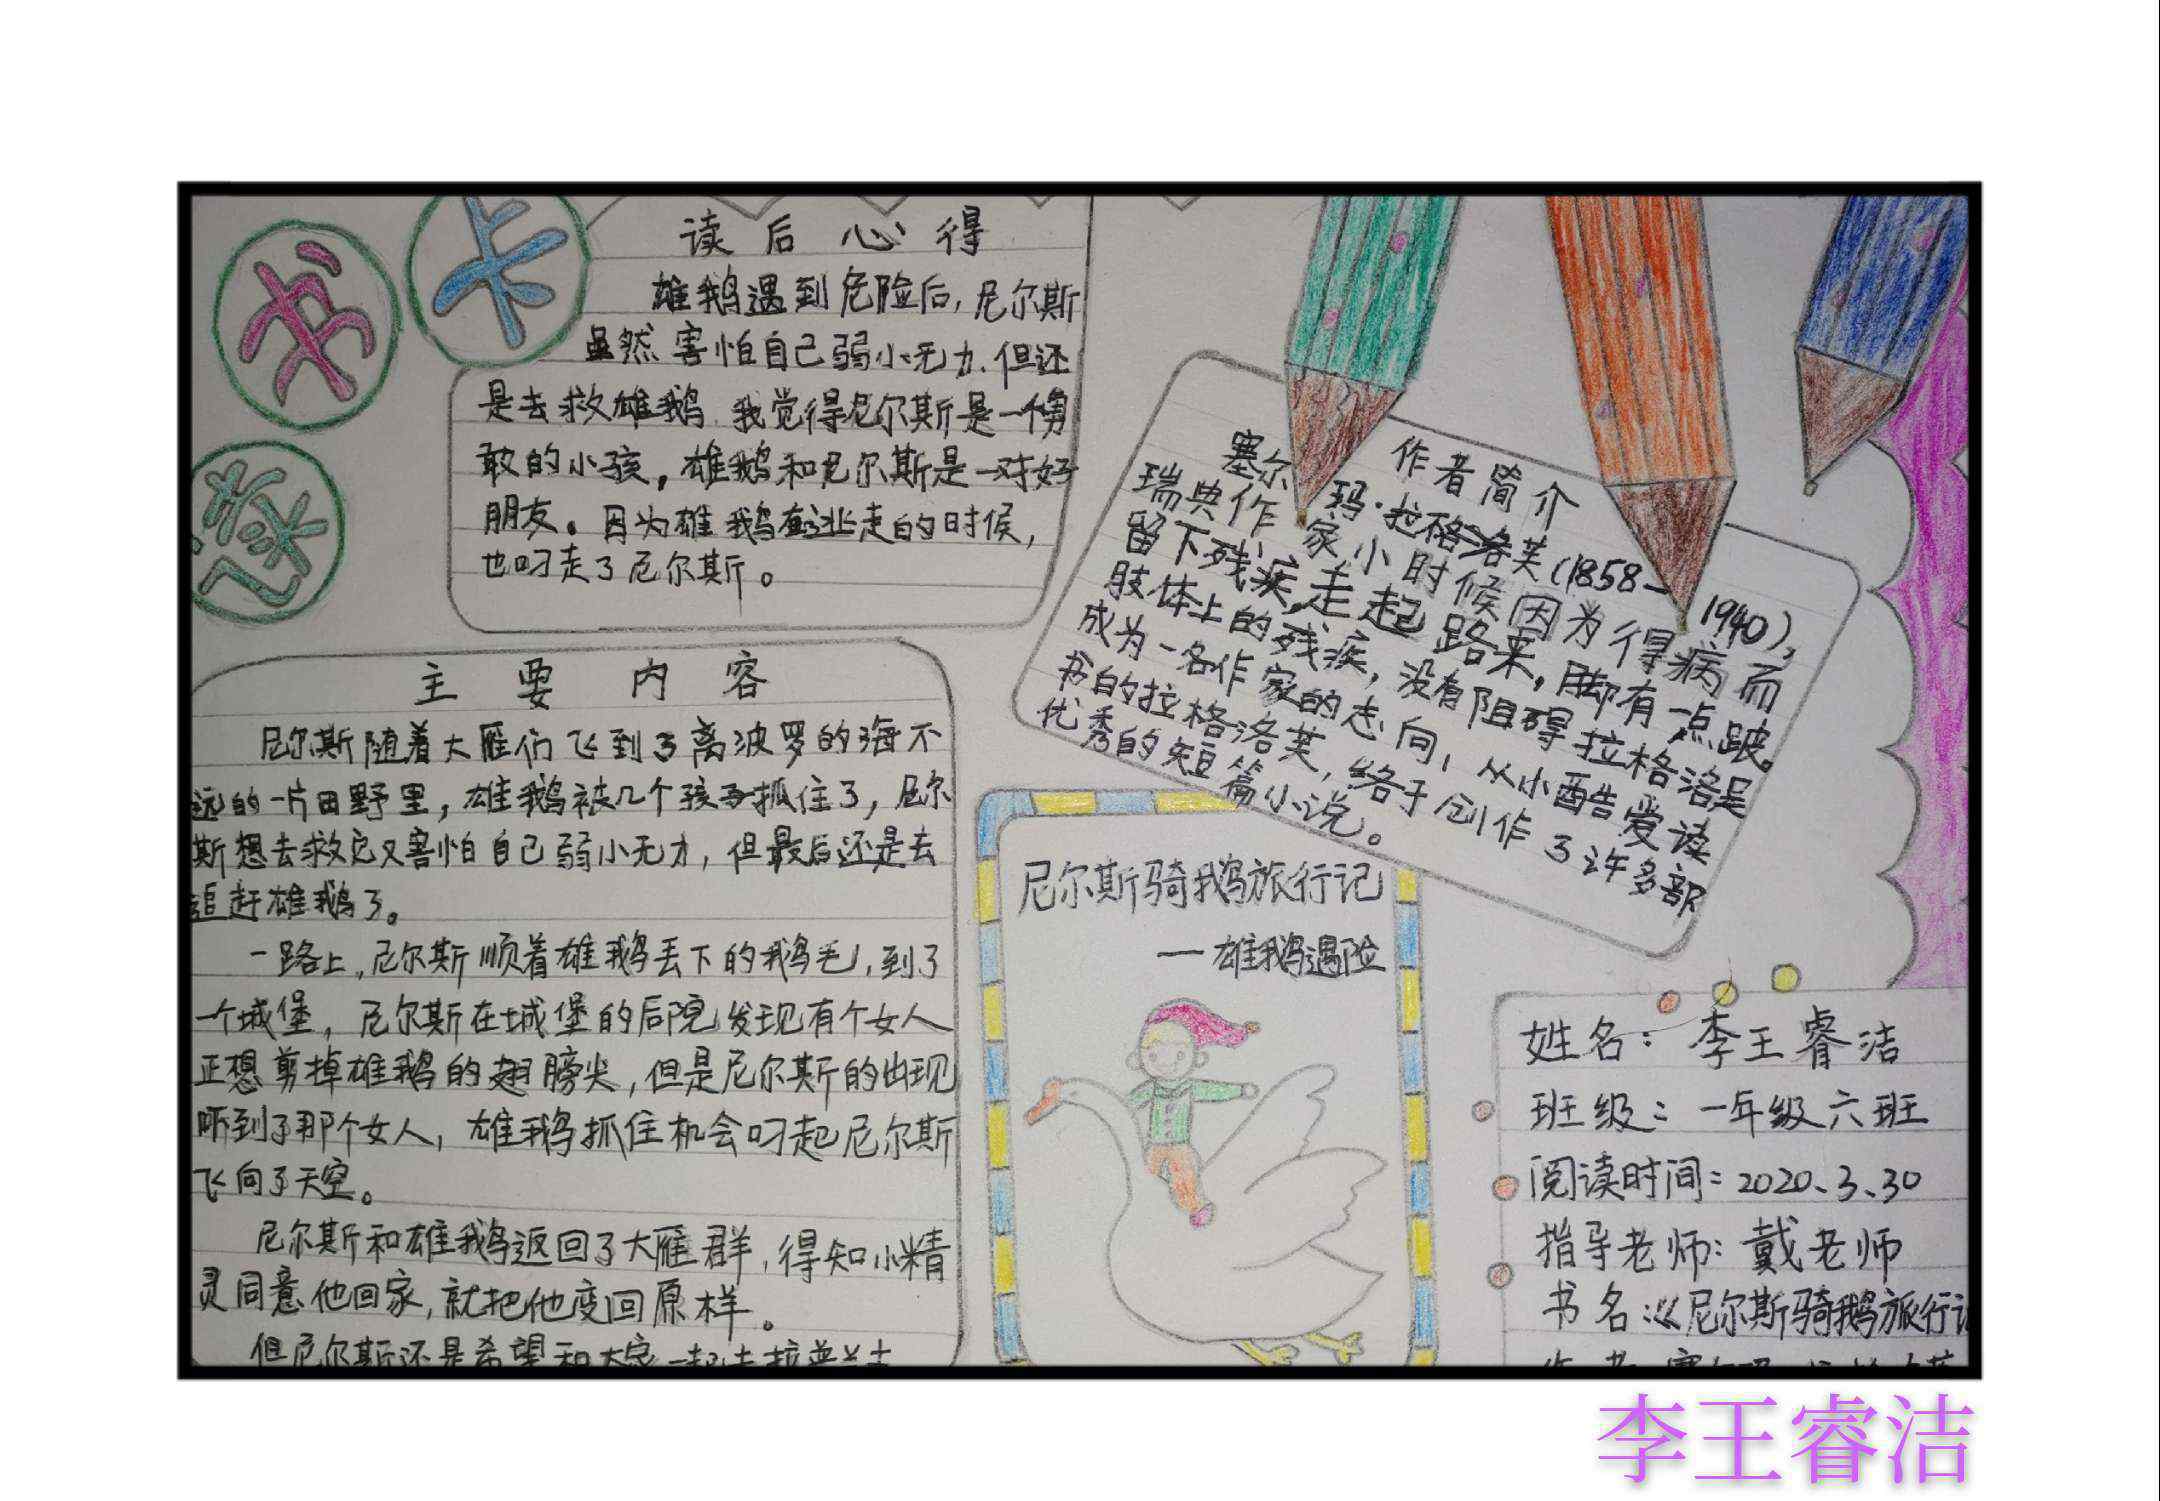 书
卡
读后心得
雄鹅遇到危险后，尼尔斯
虽然害怕自己弱小无力，但还
是去救雄鹅。我觉得尼尔斯是一个勇
敢的小孩，雄鹅和尼尔斯是一对好
朋友。因为雄鹅在逃走的时候，
也叼走了尼尔斯。
主要内容
尼尔斯随着大雁们飞到了离波罗的海不
远的一片田野里，雄鹅被几个孩子抓住了，尼尔
斯想去救它又害怕自己弱小无才，但最后还是去
追赶雄鹅了。
一路上，尼尔斯顺着雄鹅丢下的鹅毛，到了
一个城堡，尼尔斯在城堡的后院发现有个女人
正想剪掉雄鹅的翅膀尖，但是尼尔斯的出现
吓到了那个女人，雄鹅抓住机会叼起尼尔斯
飞向了天空。
尼尔斯和雄鹅返回了大雁群，得知小精
灵同意他回家，就把他变回原样。
但尼尔斯还是希望和大家一起去拉普兰
作者简介
塞尔玛·拉格洛芙（1858-1940），
瑞典作家小时候因为得病而
留下残疾，走起路来，脚有一点跛。
肢体上的残疾，没有阻碍拉格洛
成为一名作家的志向，从小酷爱读
书的拉格洛芙，终于创作了许多部
优秀的短篇小说。
尼尔斯骑鹅旅行记
—雄鹅遇险
姓名：李王睿洁
班级：一年级六班
阅读时间：2020、3、30
指导老师：戴老师
书名：《尼尔斯骑鹅旅行记
李王睿洁